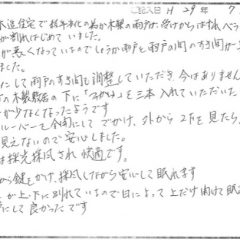 記入日 H 29年 7
木造住宅で経年劣化の為か木製の雨戸は
が割れはじめていました。
が悪くなっているのでしょうか雨戸と雨戸の間のすき間が
ました。
にして雨戸のすき間も調整していただき今はありません
の木製敷居の下に「つかえ」を三本入れていただいた
が少なくなったようです
ルーバーを全開にしてでかけ、外から2Fを見たら
見えないので安心しました。
は採光採風され快適です。
から鍵をかけ、採風しながら安心して眠れます
が上下に別れているので日によって上だけ開けて眠
にして良かったです